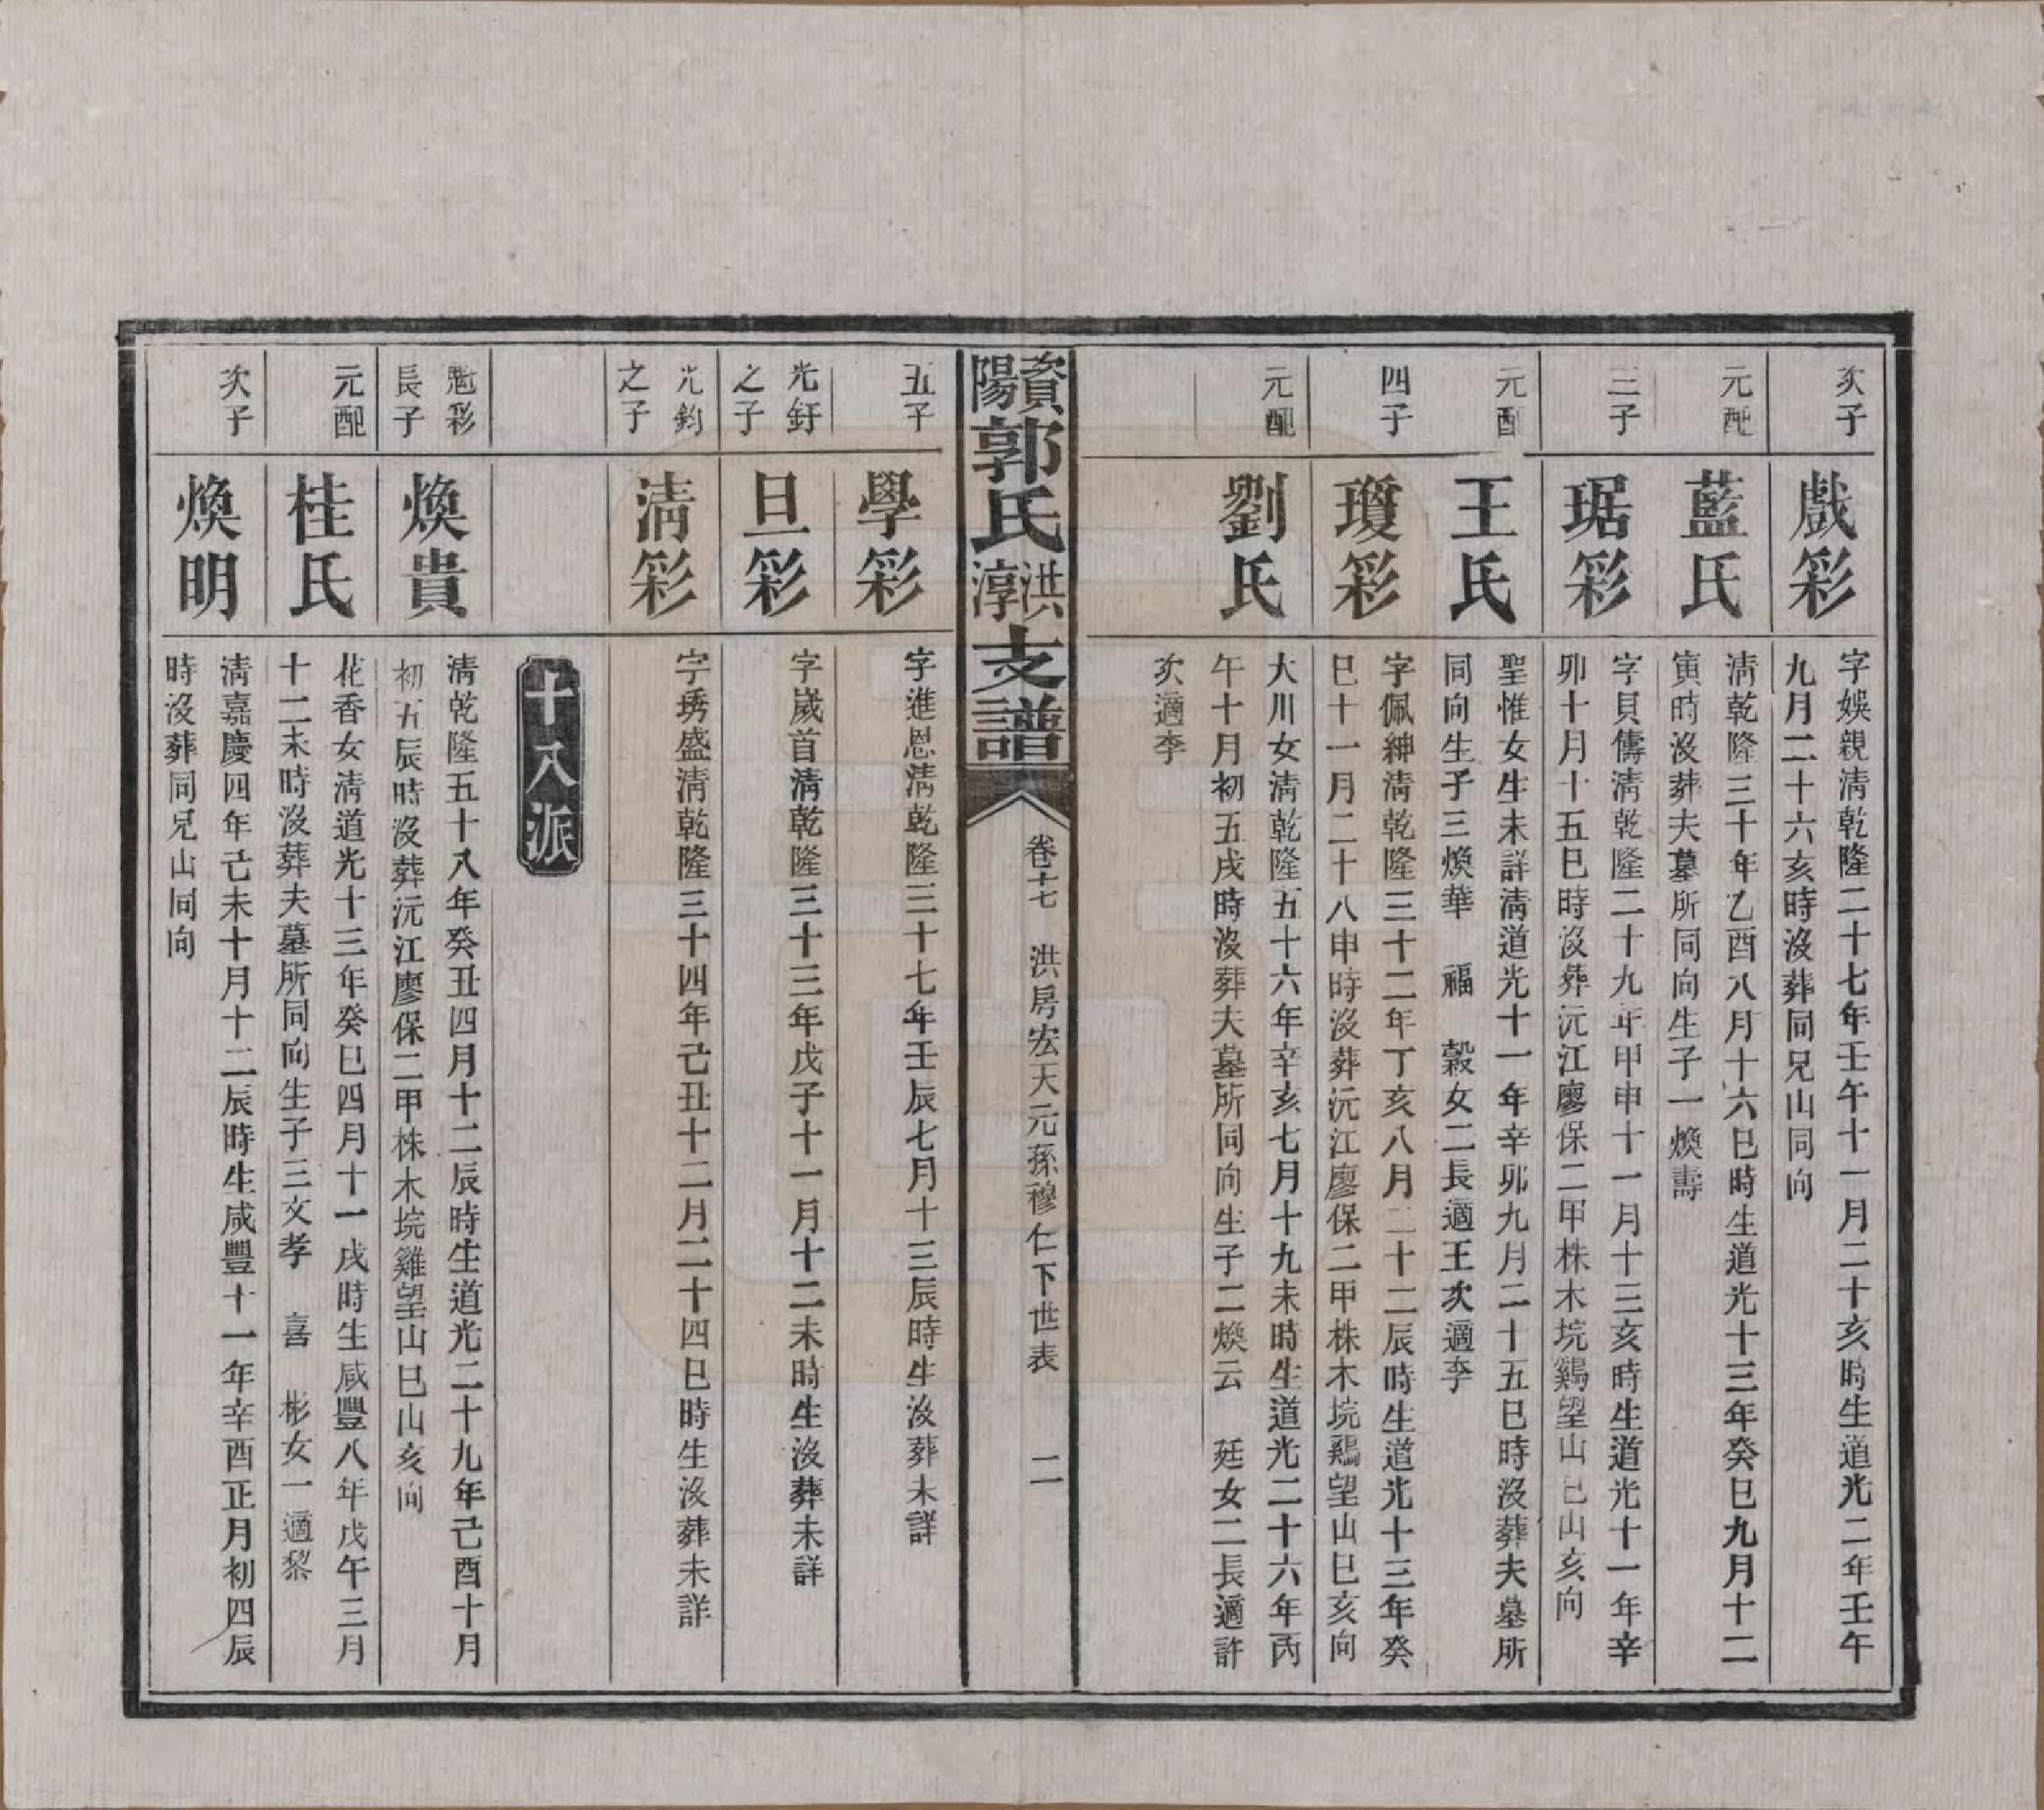 次子
戲彩
字娛親清乾隆二十七年壬午十一月二十亥時生道光二年壬午
九月二十六亥時沒葬同兄山同向
元配
藍氏
清乾隆三十年乙酉八月十六巳時生道光十三年癸巳九月十二
寅時沒葬夫墓所同向生子一煥壽
三子
琚彩
字貝儔清乾隆二十九年甲申十一月十三亥時生道光十一年辛
卯十月十五巳時沒葬沅江廖保二甲株木垸鷄望山巳山亥向
元配
王氏
聖惟女生未詳清道光十一年辛卯九月二十五巳時沒葬夫墓所
同向生子三煥華 福 穀女二長適王次適李
四子
瓊彩
字佩紳清乾隆三十二年丁亥八月二十二辰時生道光十三年癸
巳十一月二十八申時沒葬沅江廖保二甲株木垸鷄望山巳亥向
元配
劉氏
大川女清乾隆五十六年辛亥七月十九未時生道光二十六年丙
午十月初五戌時沒葬夫墓所同向生子二煥云 廷女二長適許
次適李
資陽郭氏洪淳支譜
卷十七 洪房宏天元孫穆仁下世表 二
五子
學彩
字進恩清乾隆三十七年壬辰七月十三辰時生沒葬未詳
光釪
之子
旦彩
字嵗首清乾隆三十三年戊子十一月十二未時生沒葬未詳
光鈞
之子
清彩
字琇盛清乾隆三十四年己丑十二月二十四巳時生沒葬未詳
十八派
魁彩
長子
煥貴
清乾隆五十八年癸丑四月十二辰時生道光二十九年己酉十月
初五辰時沒葬沅江廖保二甲株木垸雞望山巳山亥向
元配
桂氏
花香女清道光十三年癸巳四月十一戌時生咸豐八年戊午三月
十二未時沒葬夫墓所同向生子三文孝 喜 彬女一適黎
次子
煥明
清嘉慶四年己未十月十二辰時生咸豐十一年辛酉正月初四辰
時沒葬同兄山同向